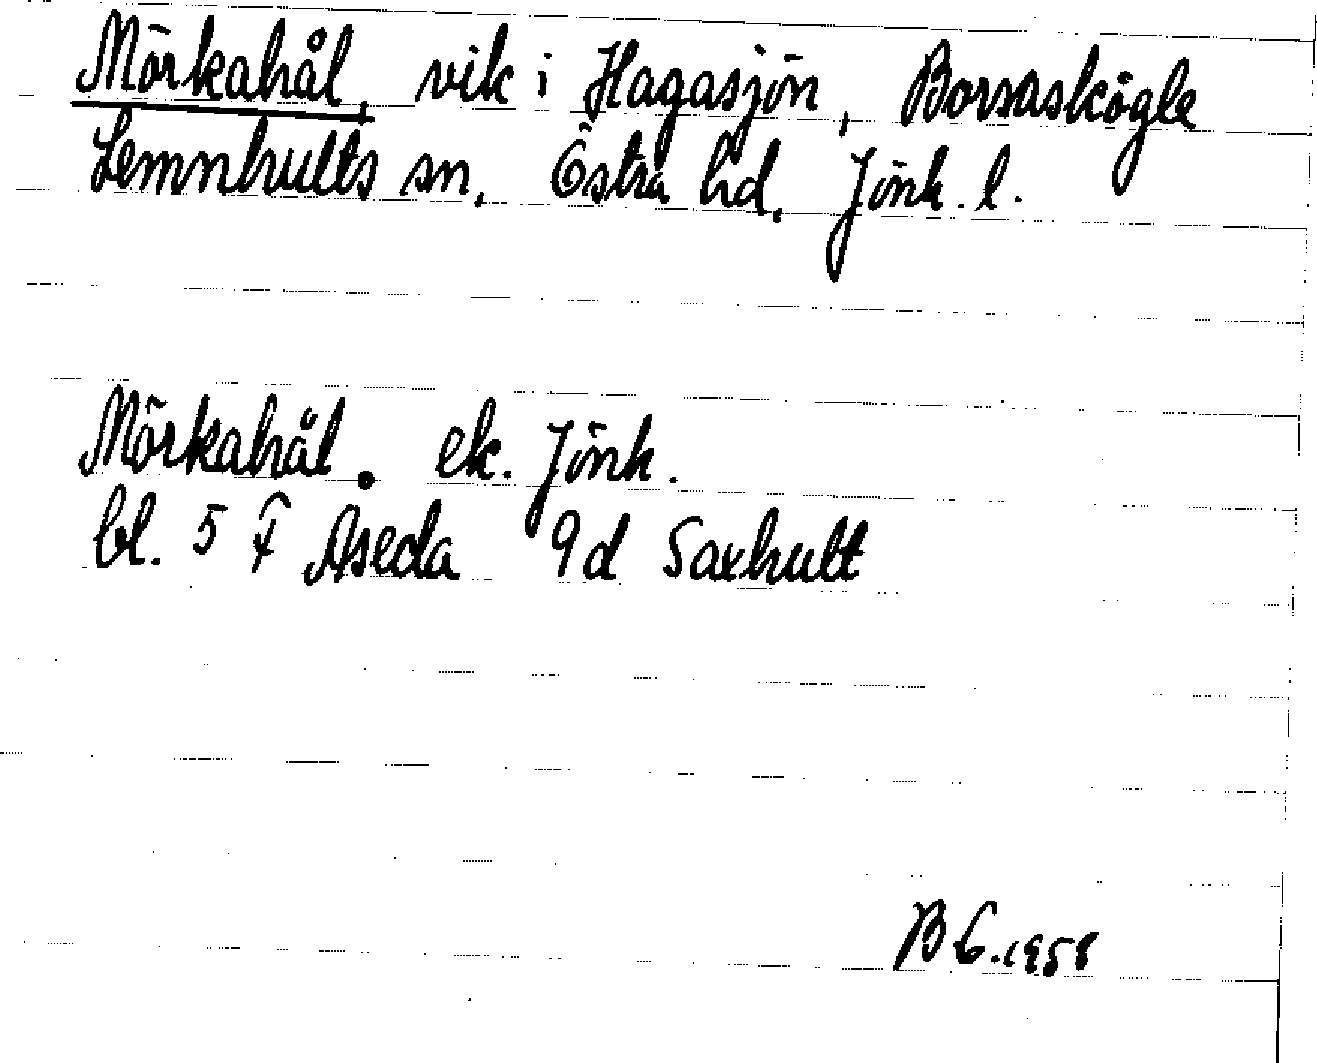 Mörkahål, vik i Hagasjön, Borsaskögle
Lemnhults sn, Östra hd, Jönk. l.
Mörkahål. ek. Jönk.
bl. 5 F Åseda 9d Saxhult
B G. 1958